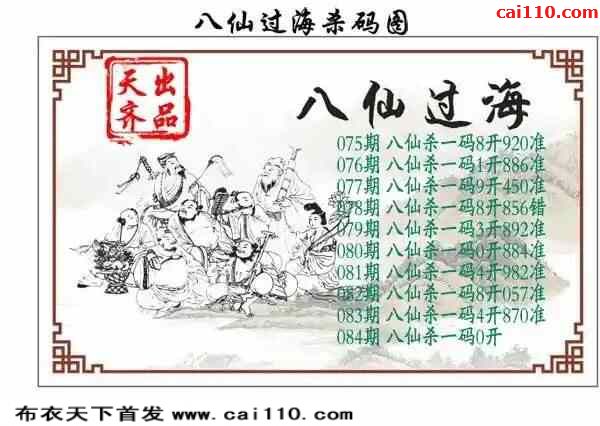 cai110.com
八仙过海杀码图
天齐
出品
八仙过海
075期 八仙杀一码8开920准
076期 八仙杀一码1开886准
077期 八仙杀一码9开450准
078期 八仙杀一码8开856错
079期 八仙杀一码3开892准
080期 八仙杀一码0开884准
081期 八仙杀一码4开982准
082期 八仙杀一码8开057准
083期 八仙杀一码4开870准
084期 八仙杀一码0开
布衣天下首发 www.cai110.com